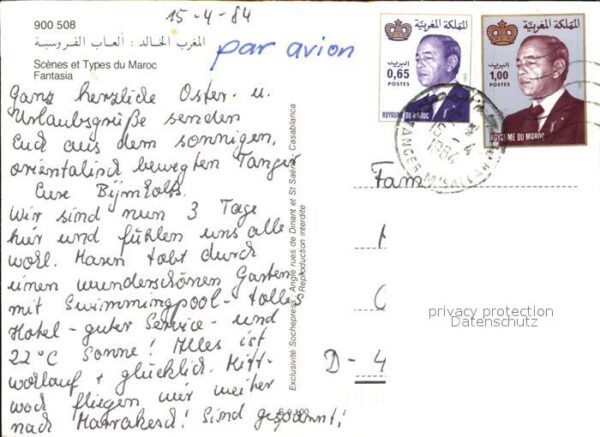 15-4-84
900 508
المغرب الخالد : ألعاب الفروسية
par avion
Scènes et Types du Maroc
Fantasia
Ganz herzliche Oster- u.
Urlaubsgrüße senden
Euch aus dem sonnigen,
orientalisch bewegten Tanger
Eure
Wir sind nun 3 Tage
hier und fühlen uns alle
wohl. Maren tobt durch
einen wunderschönen Garten
mit Swimmingpool - tolles
Hotel - guter Service - und
22°C Sonne! Alles ist
wohlauf + glücklich. Mitt-
woch fliegen wir weiter
nach Marrakesch! Sind gespannt!
Exclusivité Sochepress, Angle rues de Dinant et St Saëns, Casablanca
Reproduction interdite
المملكة المغربية
البريد
0,65
POSTES
ROYAUME DU MAROC
المملكة المغربية
البريد
1,00
POSTES
ROYAUME DU MAROC
TANGER
15-4
1984
Fam
D-4
privacy protection
Datenschutz